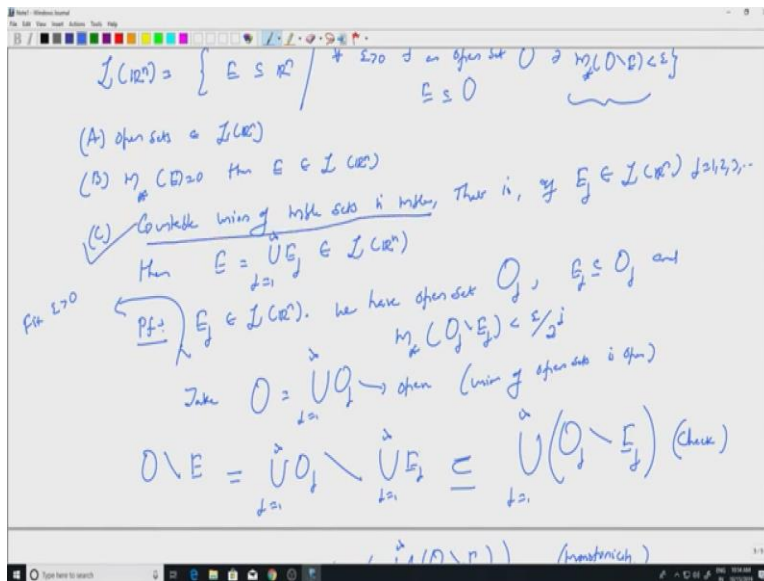 Note1 - Windows Journal
File Edit View Insert Actions Tools Help
L(ℝⁿ) = { E ⊆ ℝⁿ / ∀ ε>0 ∃ an open set O ∋ m_*(O\E) < ε }
E ⊆ O
(A) Open sets ∈ L(ℝⁿ)
(B) m_*(E)=0 then E ∈ L(ℝⁿ)
(C) Countable union of mble sets is mble, That is, if E_j ∈ L(ℝⁿ) j=1,2,3,...
then E = ∪_{j=1}^∞ E_j ∈ L(ℝⁿ)
Fix ε>0
Pf: E_j ∈ L(ℝⁿ). We have open set O_j, E_j ⊆ O_j and
m_*(O_j\E_j) < ε/2^j
Take O = ∪_{j=1}^∞ O_j → open (union of open sets is open)
O\E = ∪_{j=1}^∞ O_j \ ∪_{j=1}^∞ E_j ⊆ ∪_{j=1}^∞ (O_j \ E_j) (Check)
Type here to search
ENG